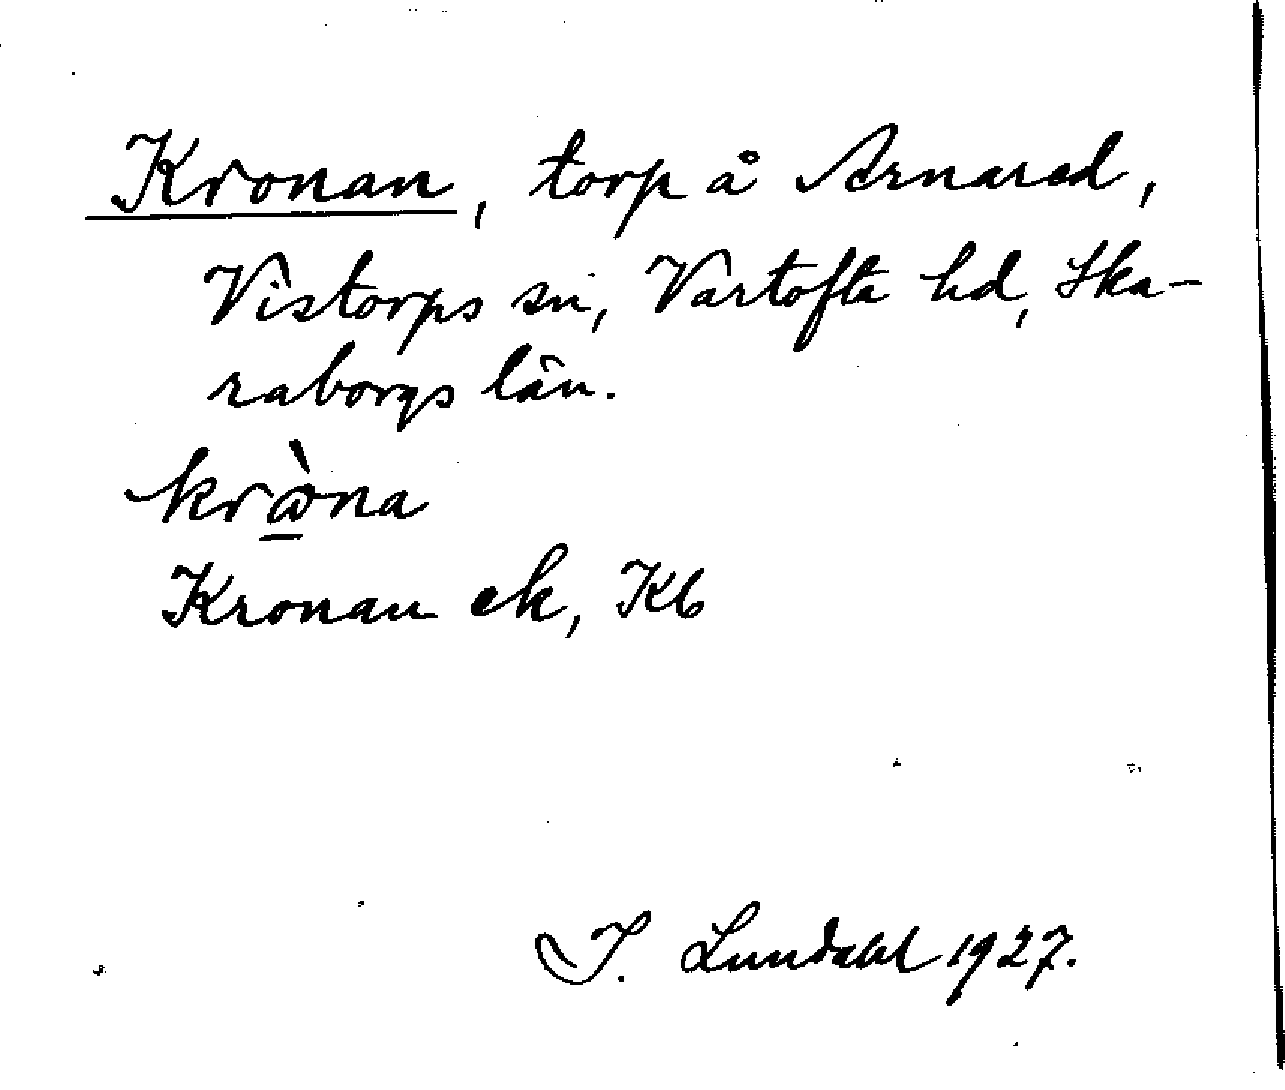 Kronan, torp å Arnared,
Vistorps sn, Vartofta hd, Ska-
raborgs län.
kròna
Kronan ek, Kb
I. Lundahl 1927.